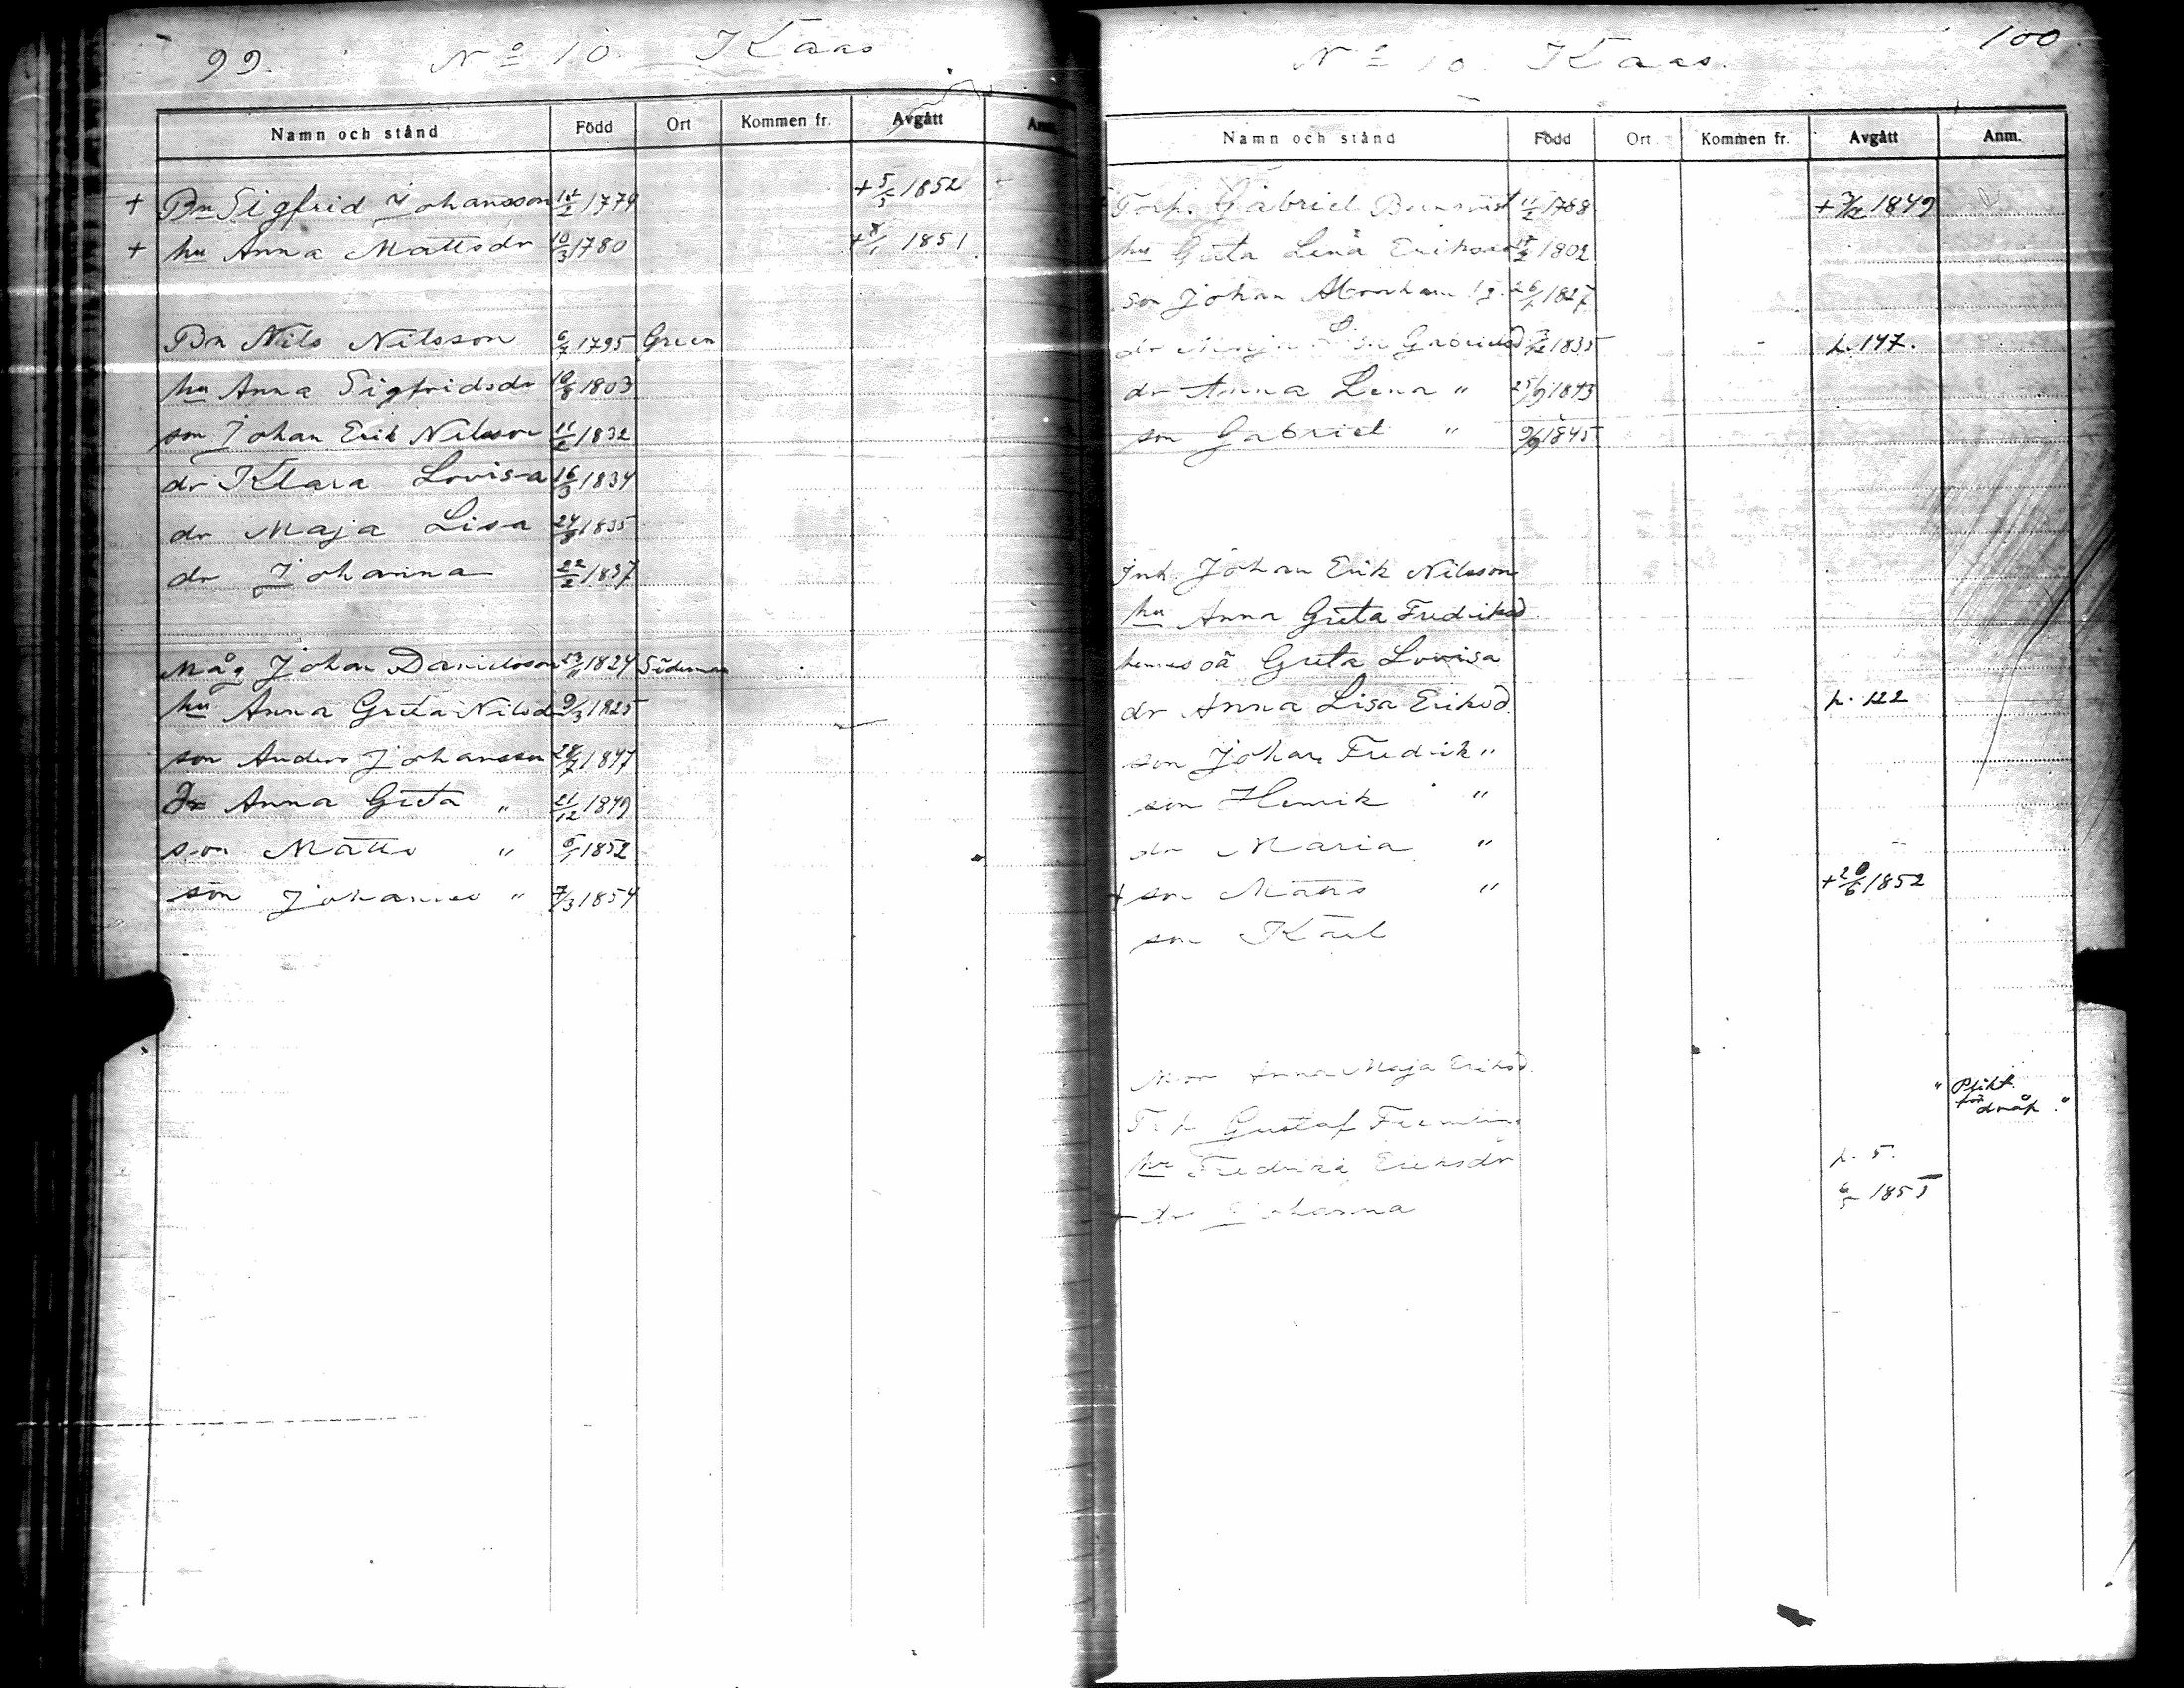 99. No 10 Kaas
Namn och stånd Född Ort Kommen fr. Avgått Anm.
+ Bn Sigfrid Johansson 14/2 1779 + 5/5 1852
+ hu Anna Mattsdr 10/3 1780 + 8/1 1851
Bn Nils Nilsson 6/7 1795 Green
hu Anna Sigfridsdr 10/8 1803
son Johan Erik Nilsson 11/2 1832
dr Klara Lovisa 16/3 1834
dr Maja Lisa 1835
dr Johanna 22/2 1837
Måg Johan Danielsson 1824
hu Anna Greta Nilsd 9/3 1825
son Anders Johansson 28/7 1847
dr Anna Greta " 21/12 1849
son Matts " 1852
son Johannes " 7/3 1854
No 10. Kaas. 100
Namn och stånd Född Ort Kommen fr. Avgått Anm.
Torp. Gabriel 1768 + 7/12 1849
hu Greta Lena 1802
son Johan Abraham 1827
dr Maja Lisa Gabrielsd 1835 p. 147.
dr Anna Lena " 25/9 1843
son Gabriel " 9/9 1845
Inh. Johan Erik Nilsson
hu Anna Greta Fredriksd.
hennes oä Greta Lovisa
dr Anna Lisa Eriksd. p. 122
son Johan Fredrik "
son Henrik "
dr Maria "
+ son Matts " + 20/6 1852
son Karl
Mor Anna Maja Eriksd.
" Plikt
för
dråp. "
Gustaf
hu Fredrika Eriksdr p. 5.
+ dr Johanna 6/5 1855